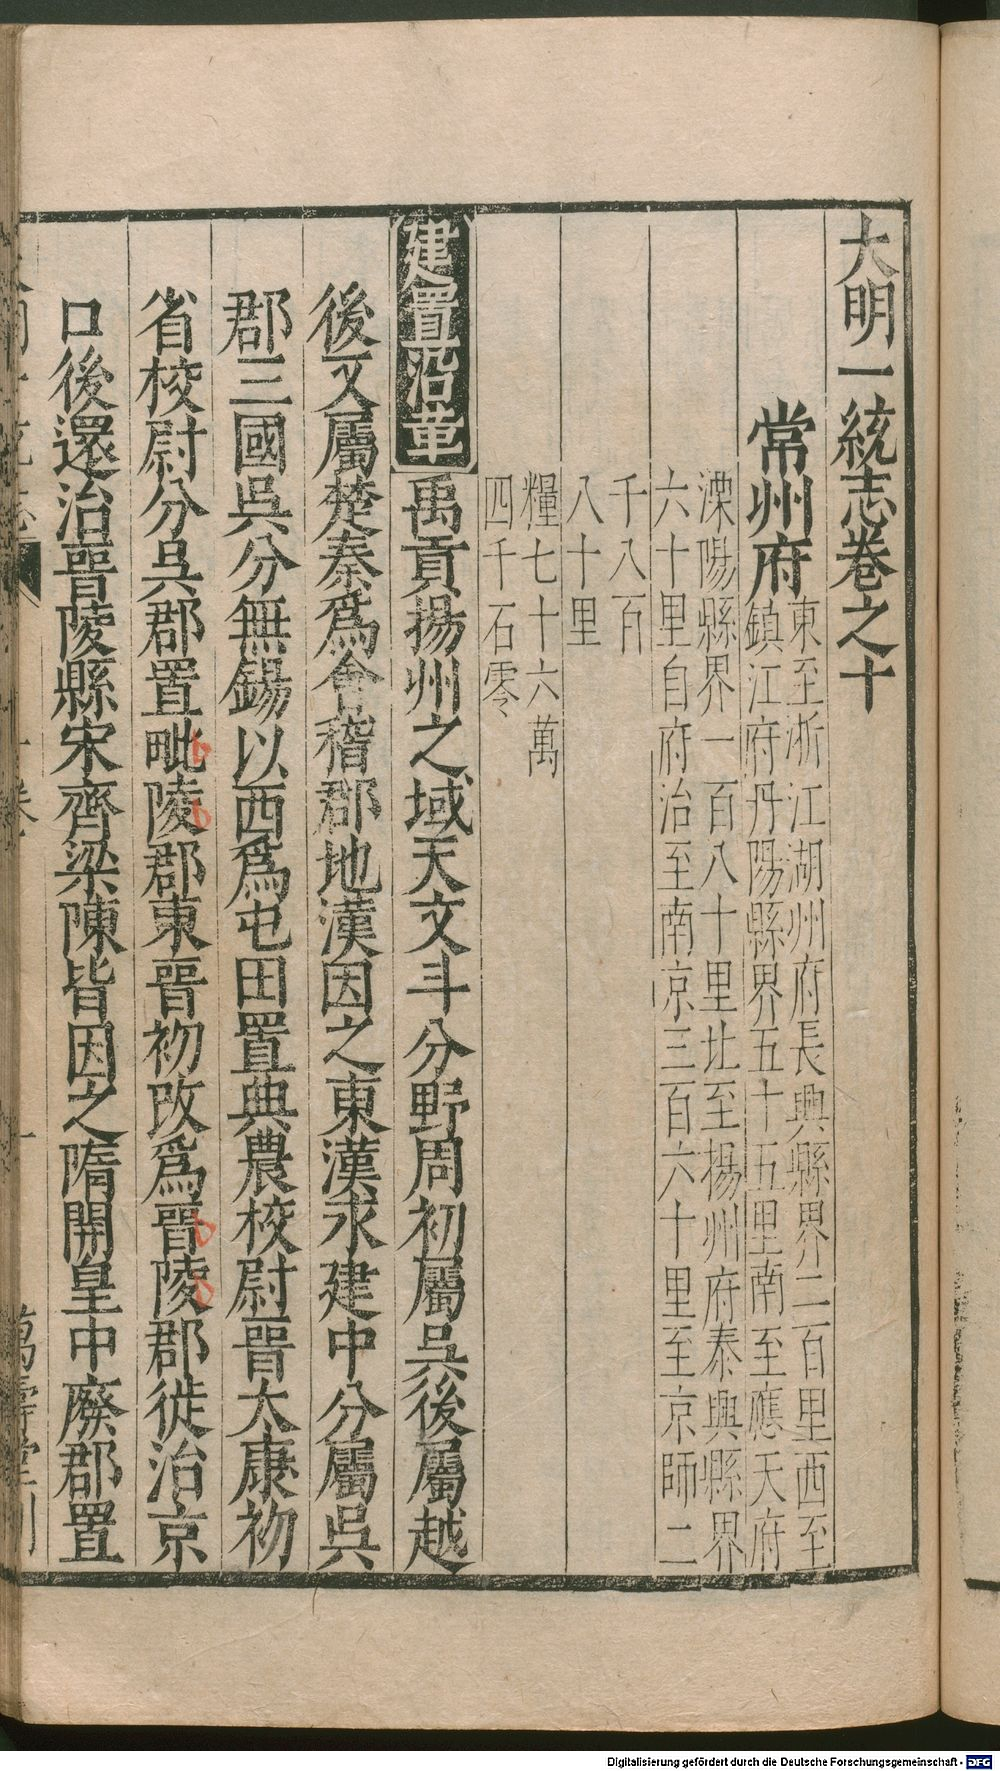 大明一統志卷之十
常州府
東至浙江湖州府長興縣界二百里西至
鎮江府丹陽縣界五十五里南至應天府
溧陽縣界一百八十里北至揚州府泰興縣界
六十里自府治至南京三百六十里至京師二
千八百
八十里
糧七十六萬
四千石零
建置沿革
禹貢揚州之域天文斗分野周初屬吳後屬越
後又屬楚秦為會稽郡地漢因之東漢永建中分屬吳
郡三國吳分無錫以西為屯田置典農校尉晉太康初
省校尉分吳郡置毗陵郡東晉初改為晉陵郡徙治京
口後還治晉陵縣宋齊梁陳皆因之隋開皇中廢郡置
Digitalisierung gefördert durch die Deutsche Forschungsgemeinschaft - DFG